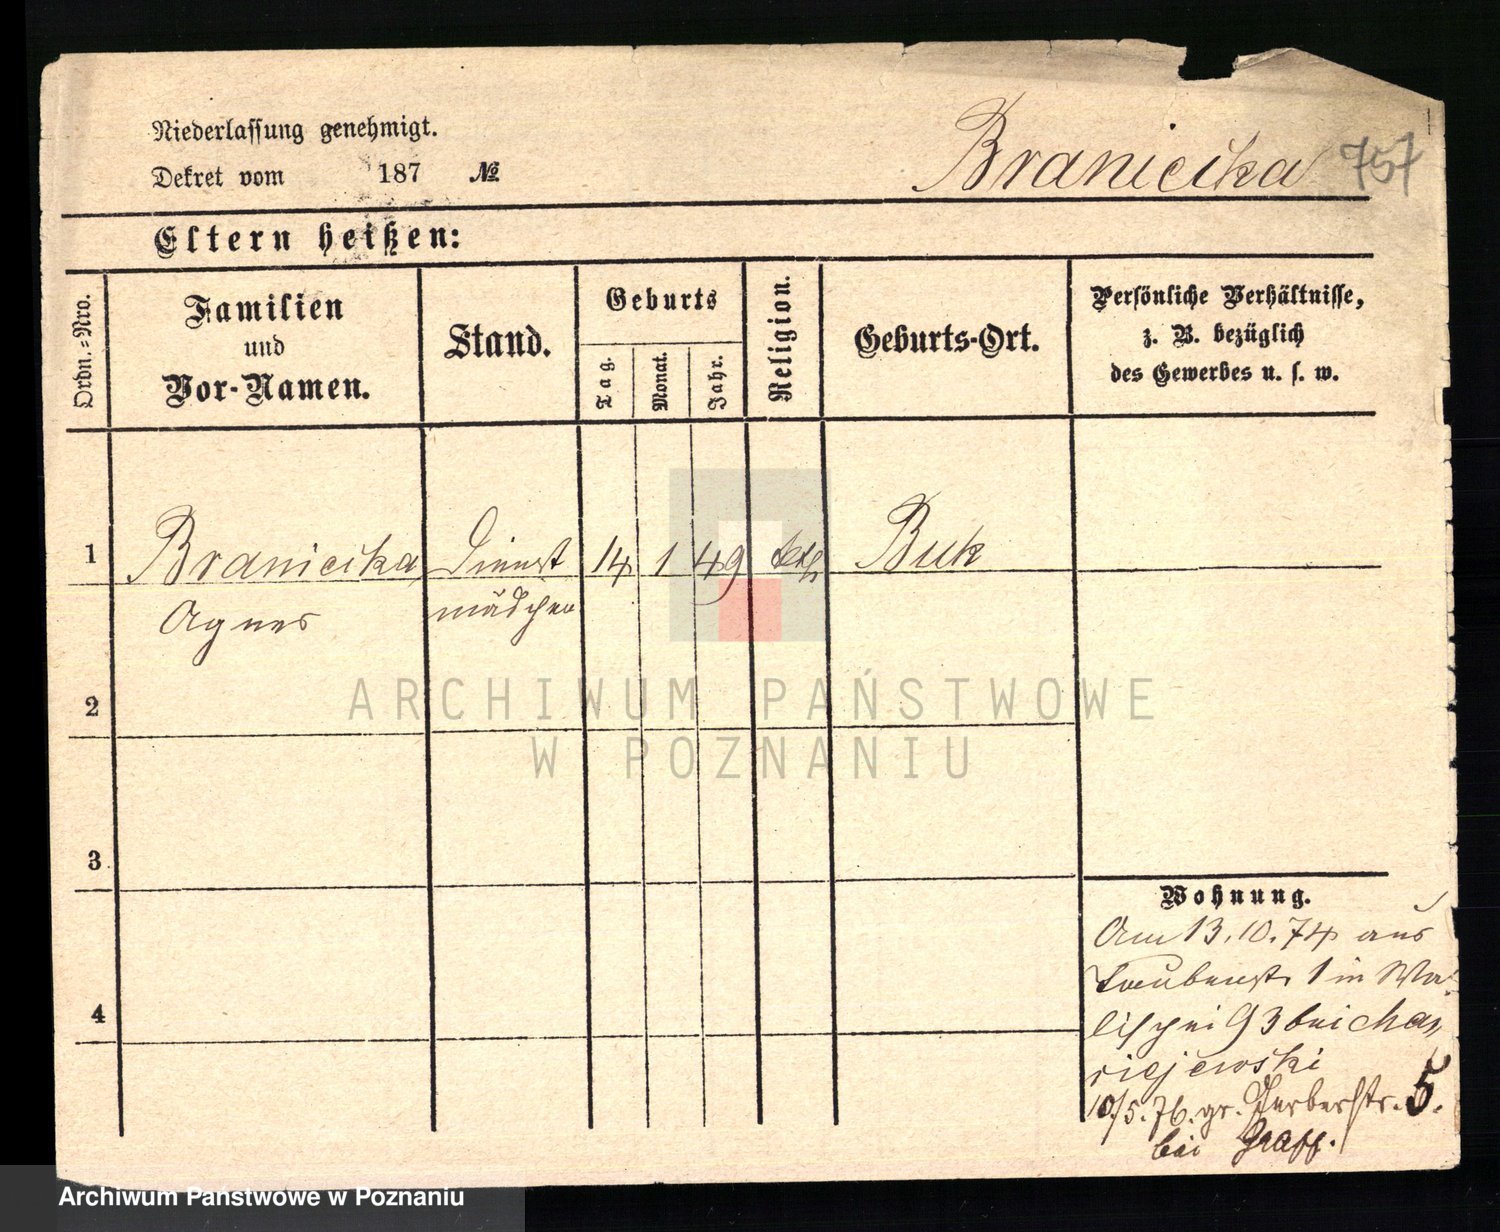 Niederlassung genehmigt.
Dekret vom 187 №
Branicika 757
Eltern heißen:
Ordn.=Nro.
Familien
und
Vor-Namen.
Stand.
Geburts
Tag.
Monat.
Jahr.
Religion.
Geburts-Ort.
Persönliche Verhältnisse,
z. B. bezüglich
des Gewerbes u. s. w.
1 Branicika, Dienst 14 1 49 kth Buk
Agnes mädchen
2
ARCHIWUM PAŃSTWOWE
W POZNANIU
3
4
Wohnung.
Am 13.10.74 aus
Taubenst 1 in Wa-
lischei 93 bei
10/5.76. gr. Gerberstr. 5.
bei Graff.
Archiwum Państwowe w Poznaniu